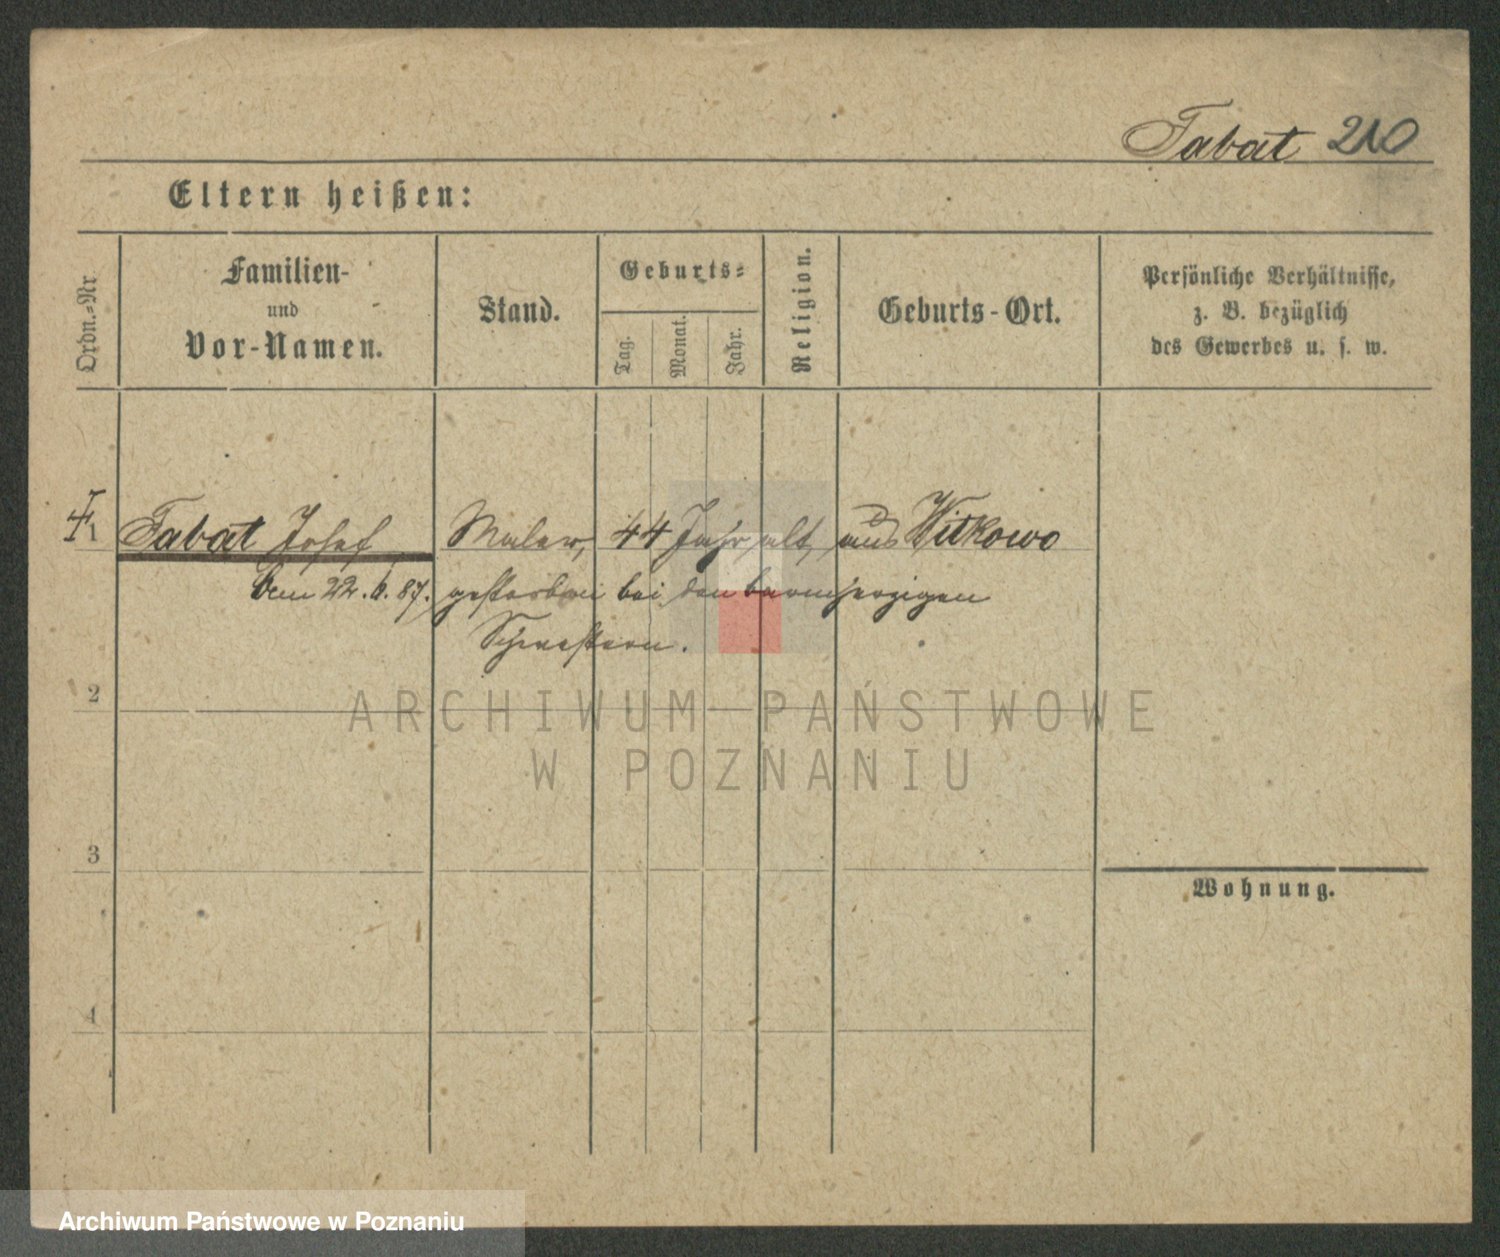 Tabat 210
Eltern heißen:
Ordn.-Nr
Familien-
und
Vor-Namen.
Stand.
Geburts-
Tag.
Monat.
Jahr.
Religion.
Geburts-Ort.
Persönliche Verhältnisse,
z. B. bezüglich
des Gewerbes u. s. w.
1 Tabat Josef Maler, 44 Jahr alt, aus Witkowo
den 22. 6. 87. gestorben bei den barmherzigen
Schwestern.
2
ARCHIWUM PAŃSTWOWE
W POZNANIU
3
Wohnung.
4
Archiwum Państwowe w Poznaniu